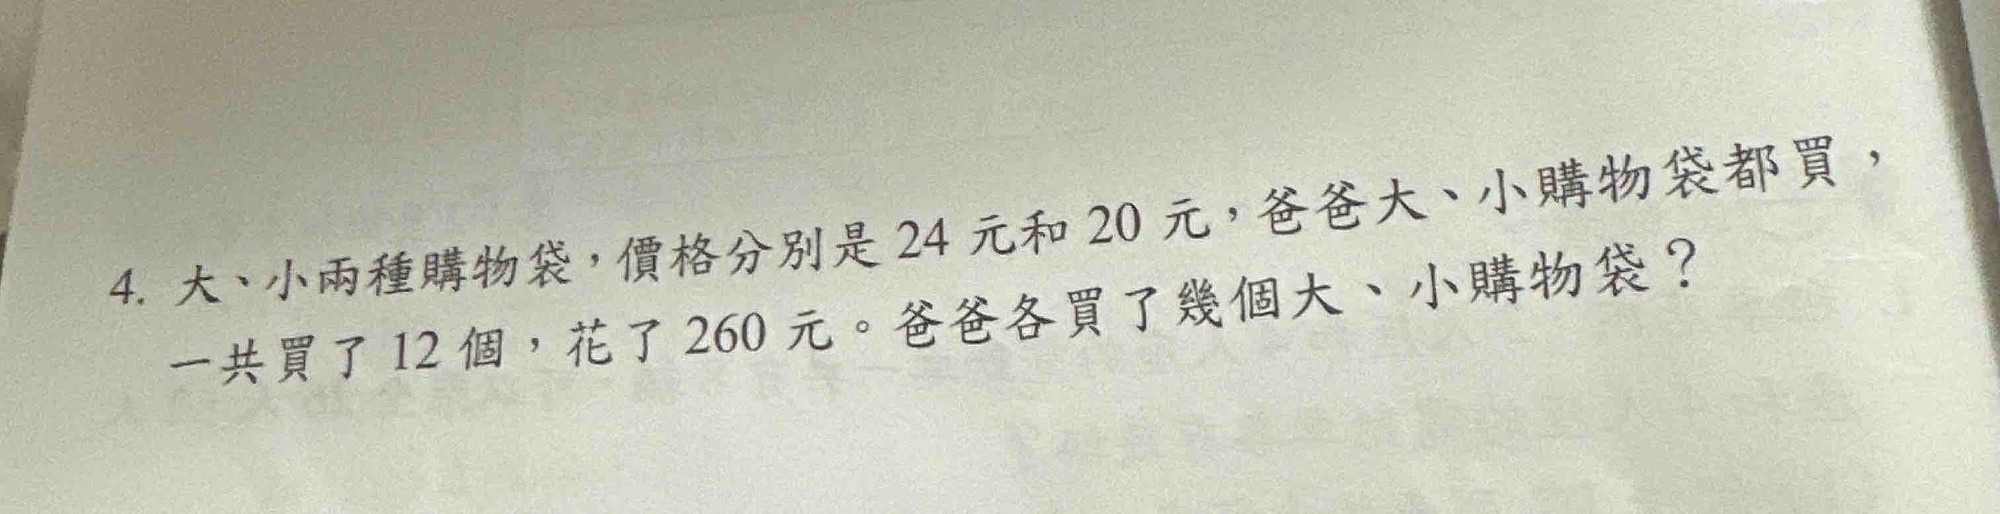 4. 大、小兩種購物袋，價格分別是 24 元和 20 元，爸爸大、小購物袋都買，
一共買了 12 個，花了 260 元。爸爸各買了幾個大、小購物袋？